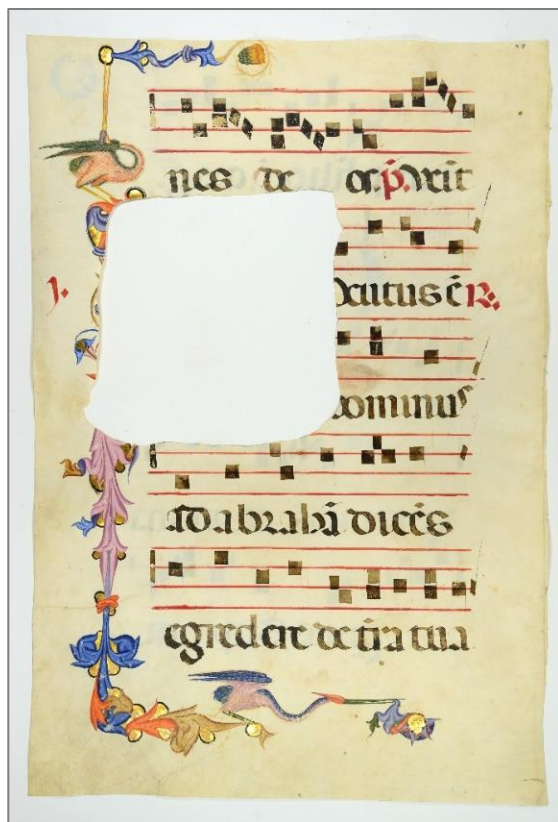 nes de p̄. Veit
j. ocutus ē R.
dominus
ad abrahā dicēs
egredere de t̄ra tua